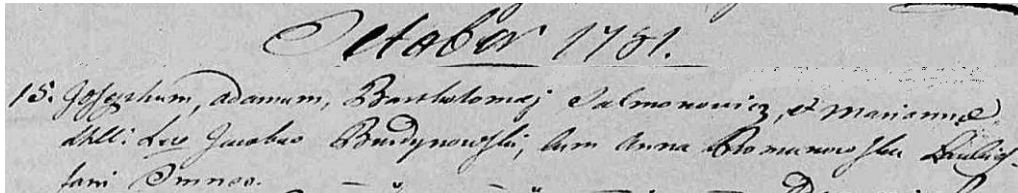 October 1781.
15. Josephum, adamum, Bartholomej Salmonowicz, et Marianna
Jacobus Burdynowski, cum Anna Romanowska
Omnes.